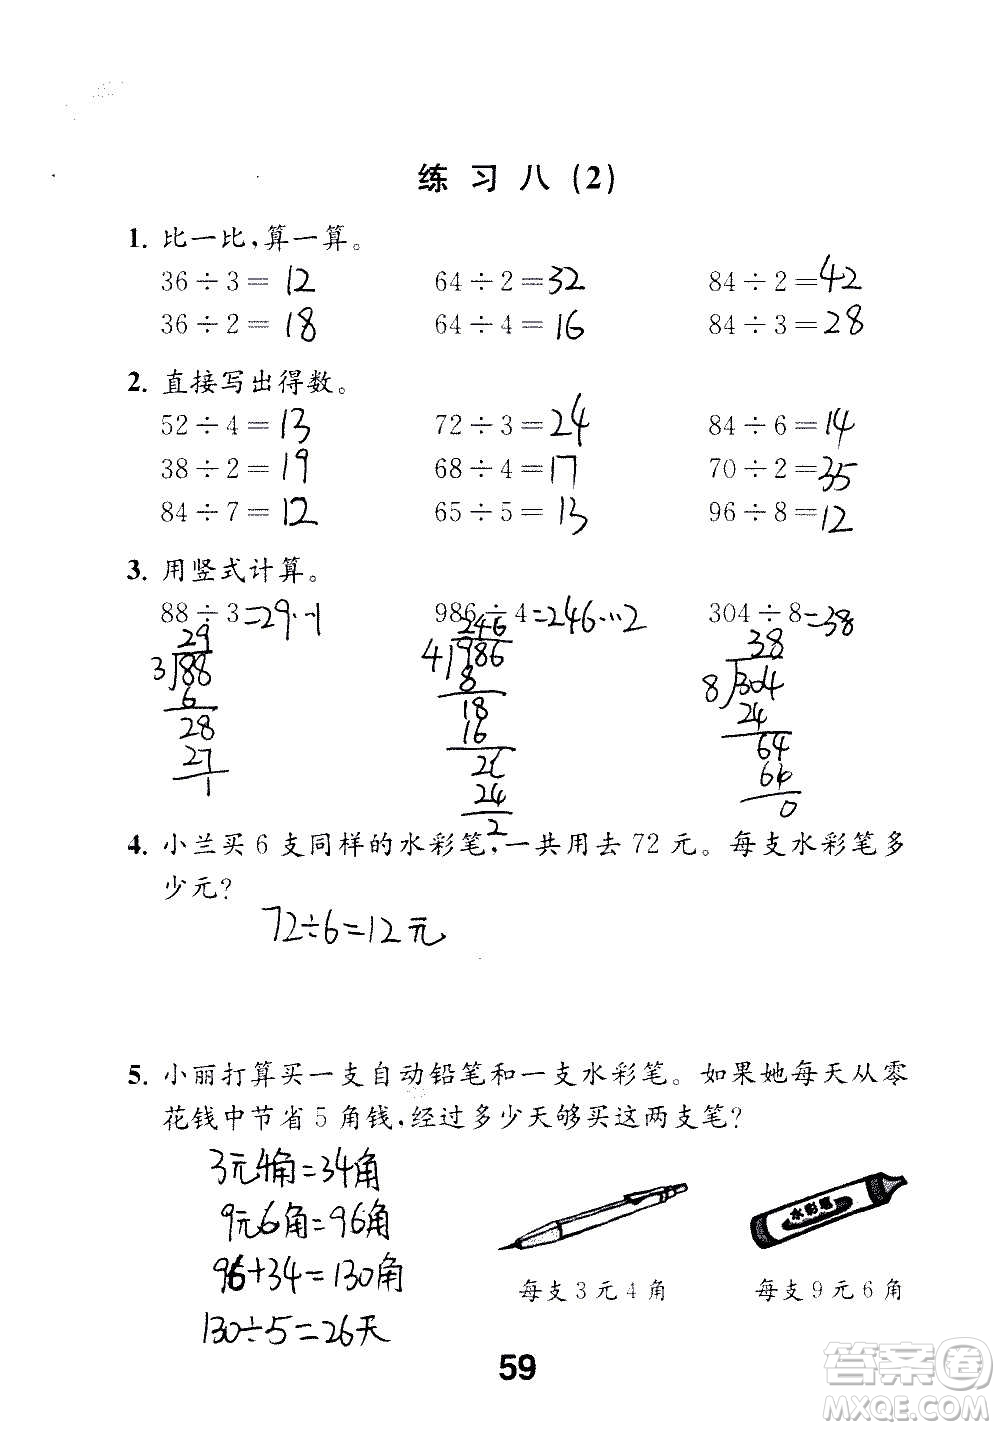 练习八(2)
1. 比一比,算一算。
36÷3=12 64÷2=32 84÷2=42
36÷2=18 64÷4=16 84÷3=28
2. 直接写出得数。
52÷4=13 72÷3=24 84÷6=14
38÷2=19 68÷4=17 70÷2=35
84÷7=12 65÷5=13 96÷8=12
3. 用竖式计算。
88÷3=29…1 986÷4=246…2 304÷8=38
29 246 38
3 88 4 986 8 304
6 8 24
28 18 64
27 16 64
1 26 0
24
2
4. 小兰买6支同样的水彩笔,一共用去72元。每支水彩笔多
少元?
72÷6=12元
5. 小丽打算买一支自动铅笔和一支水彩笔。如果她每天从零
花钱中节省5角钱,经过多少天够买这两支笔?
3元4角=34角
9元6角=96角
96+34=130角
130÷5=26天
水彩笔
每支3元4角 每支9元6角
59
答案圈
MXQE.COM